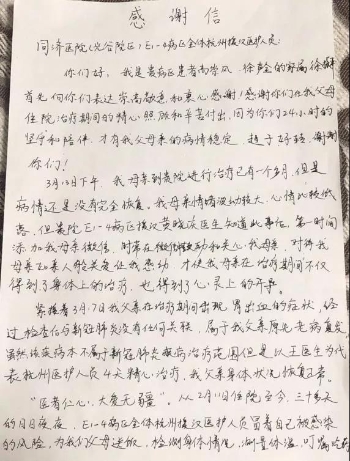 感谢信
同济医院(光谷院区)E1-4病区全体杭州援汉医护人员:
你们好,我是贵病区患者 的家属徐
首先向你们表达崇高敬意和衷心感谢!感谢你们在我父母
住院治疗期间的精心照顾和辛苦付出,因为你们24小时的
坚守和陪伴,才有我父母亲的病情稳定,趋于好转,谢谢
你们!
3月13日下午,我母亲到贵院进行治疗已有一个多月,但是
病情还是没有完全恢复。我母亲情绪波动较大,心情比较低
落,但贵院E1-4病区援汉黄晓 医生知道此事后,第一时间
添加我母亲微信,时常在微信 和关心我母亲,对待我
母亲已亲人般关爱让我感动,才使我母亲在治疗期间不仅
得到了身体上的治疗,也得到了心灵上的开导。
紧接着3月17日我父亲在治疗期间出现胃出血的症状,经
过检查后与新冠肺炎没有任何关联,属于我父亲原先老病复发
虽然该疾病本不属于新冠肺炎疾病治疗范围但是以王医生为代
表杭州医护人员4天精心治疗,我父亲身体状况恢复正常。
“医者仁心,大爱无疆”。从2月11日住院至今,三十多天
的日日夜夜,E1-4病区全体杭州援汉医护人员冒着自己被感染
的风险,为我们父母送饭,检测身体情况,测量体温,叮嘱吃药